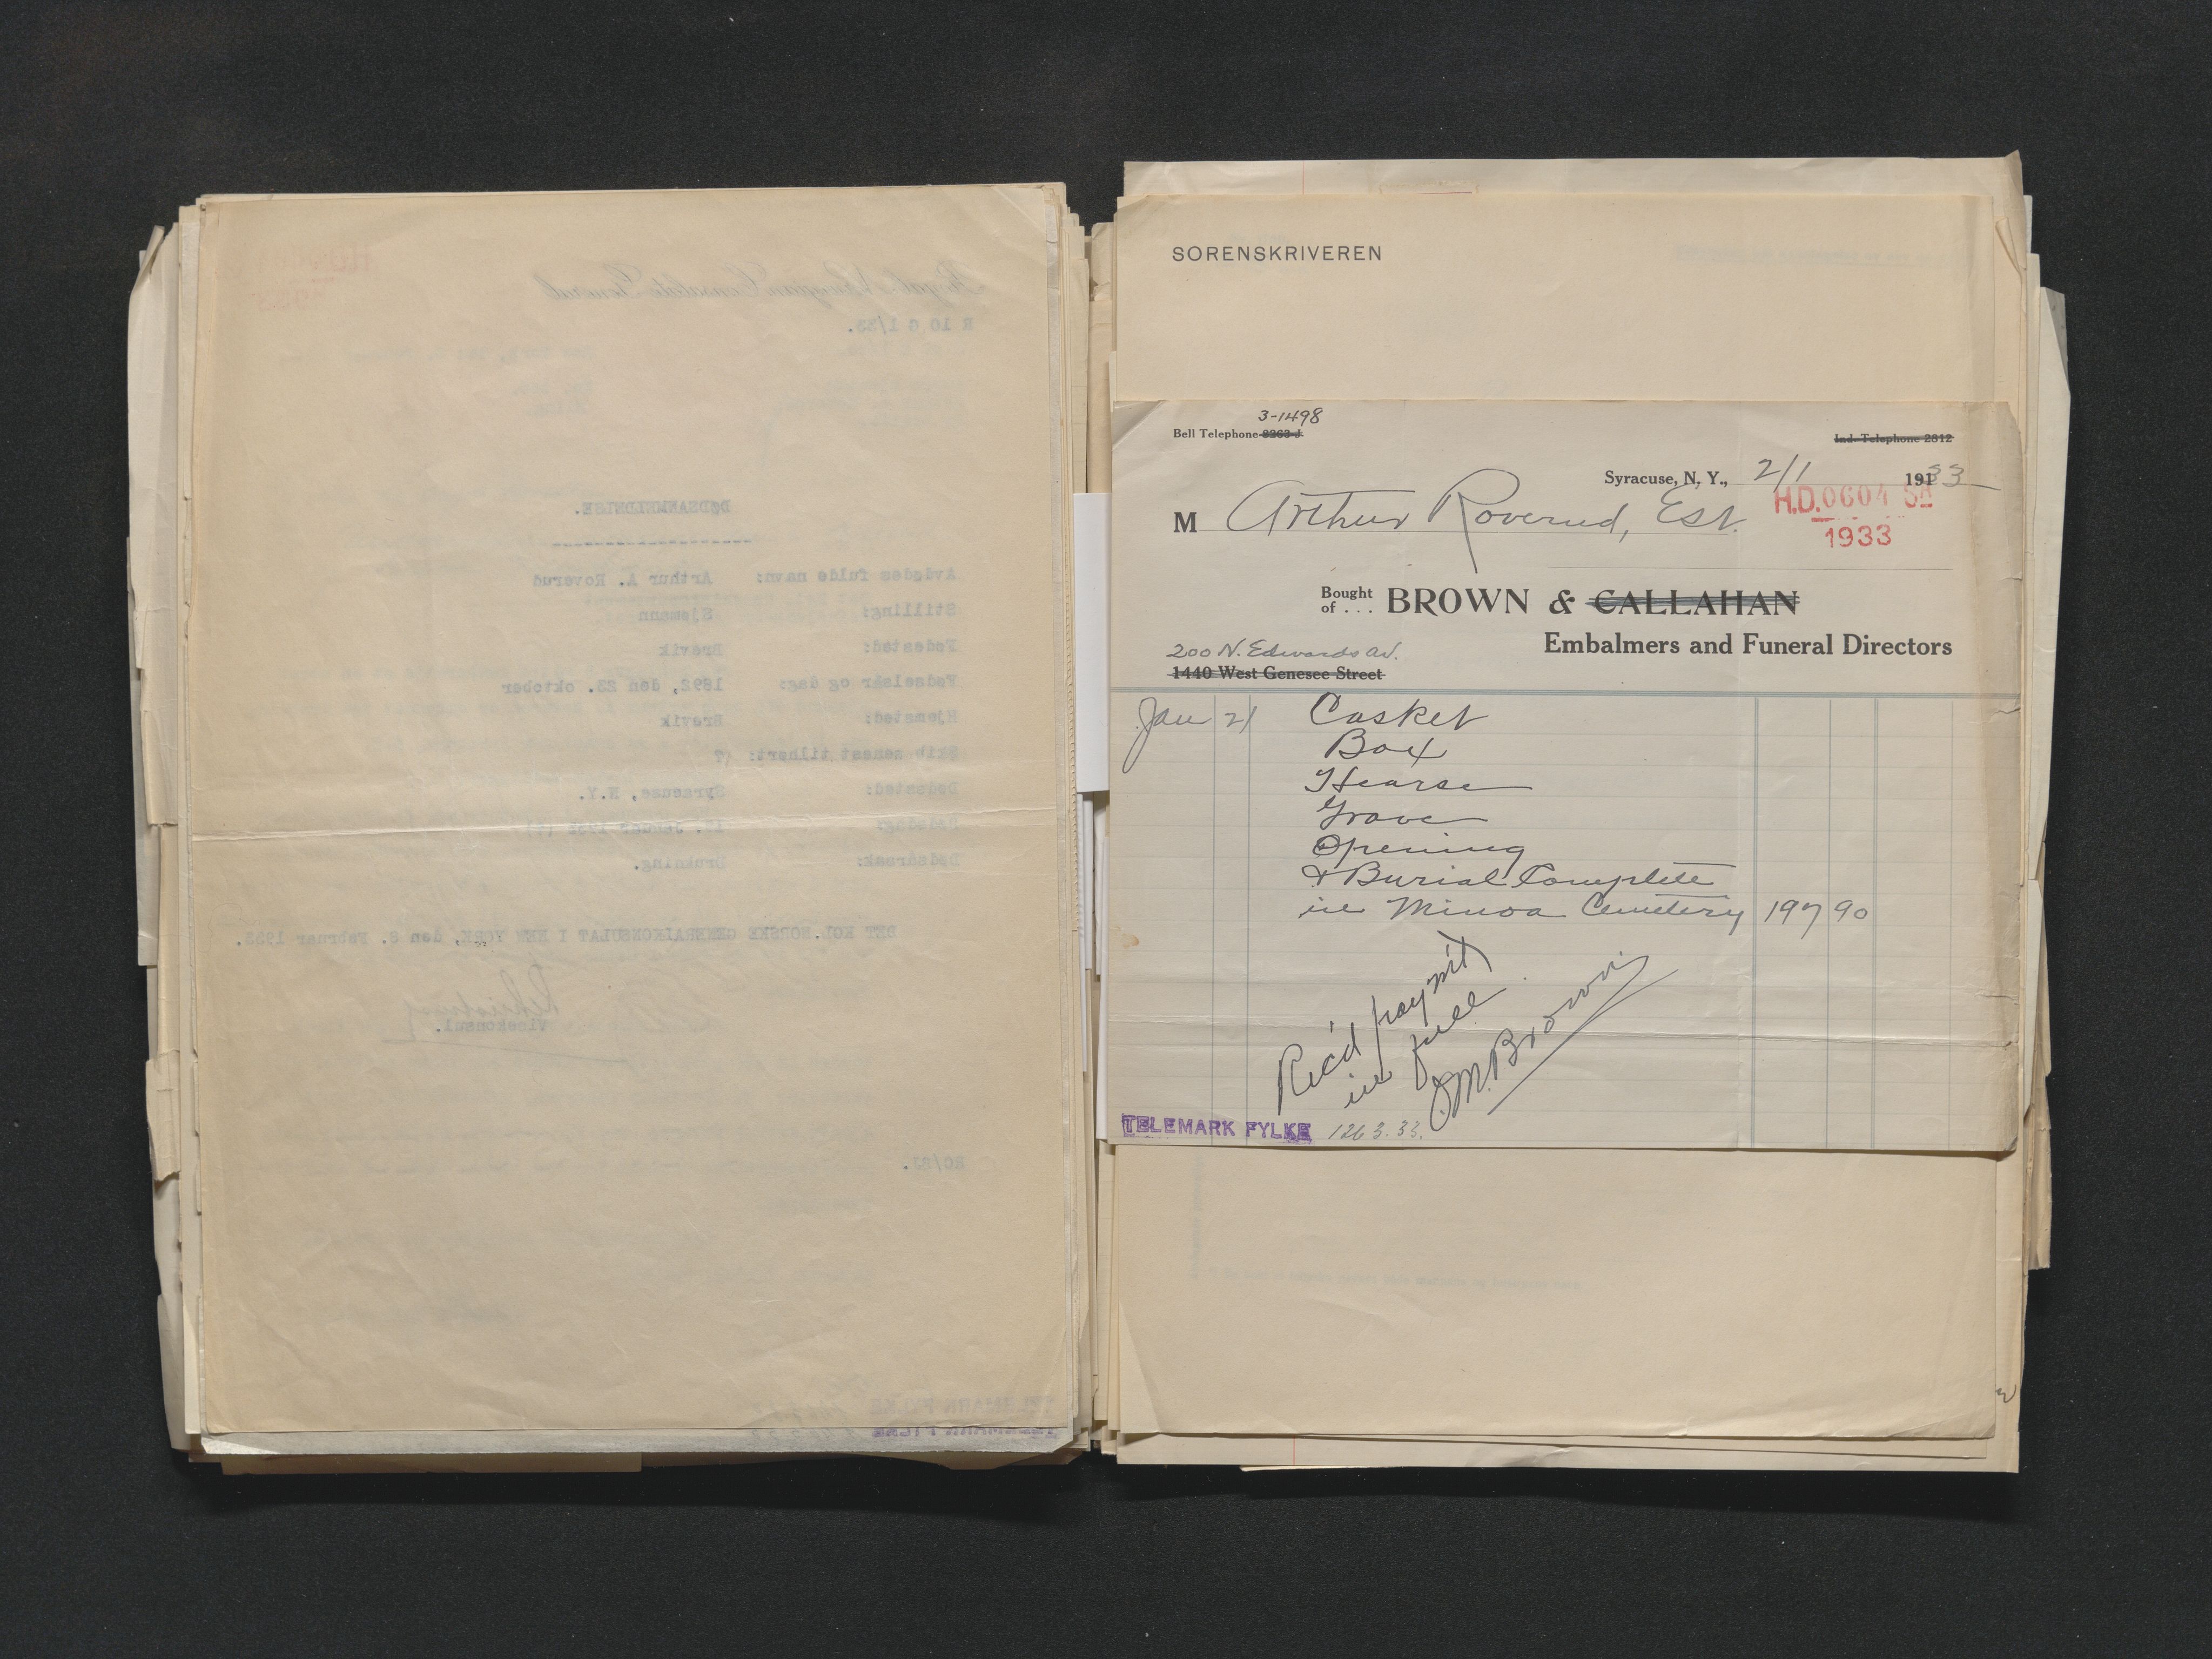 Royal Norwegian Consulate General
R 10 G 1/33.
DØDSANMELDELSE.
Avdødes fulde navn: Arthur A. Roverud
Stilling: Sjømann
Fødested: Brevik
Fødselsår og dag: 1892, den 23. oktober
Hjemsted: Brevik
Skib senest tilhørt: ?
Dødssted: Syracuse, N.Y.
Dødsårsak: Drukning.
DET KGL. NORSKE GENERALKONSULAT I NEW YORK, den 8. Februar 1933.
Visekonsul.
TELEMARK FYLKE
TELEMARK FYLKE
SORENSKRIVEREN
3-1498
Bell Telephone 8263-J
Ind. Telephone 2812
Syracuse, N. Y., 2/1 1933
H.D.0604 SA
1933
M Arthur Roverud, Est.
Bought of . . . BROWN & CALLAHAN
Embalmers and Funeral Directors
200 N. Edwards Av.
1440 West Genesee Street
Jan 21 Casket
Box
Hearse
Grave
Opening
& Burial Complete
in Minoa Cemetery 197 90
Rec'd paym't
in full
M. Brown
TELEMARK FYLKE 1263.33.